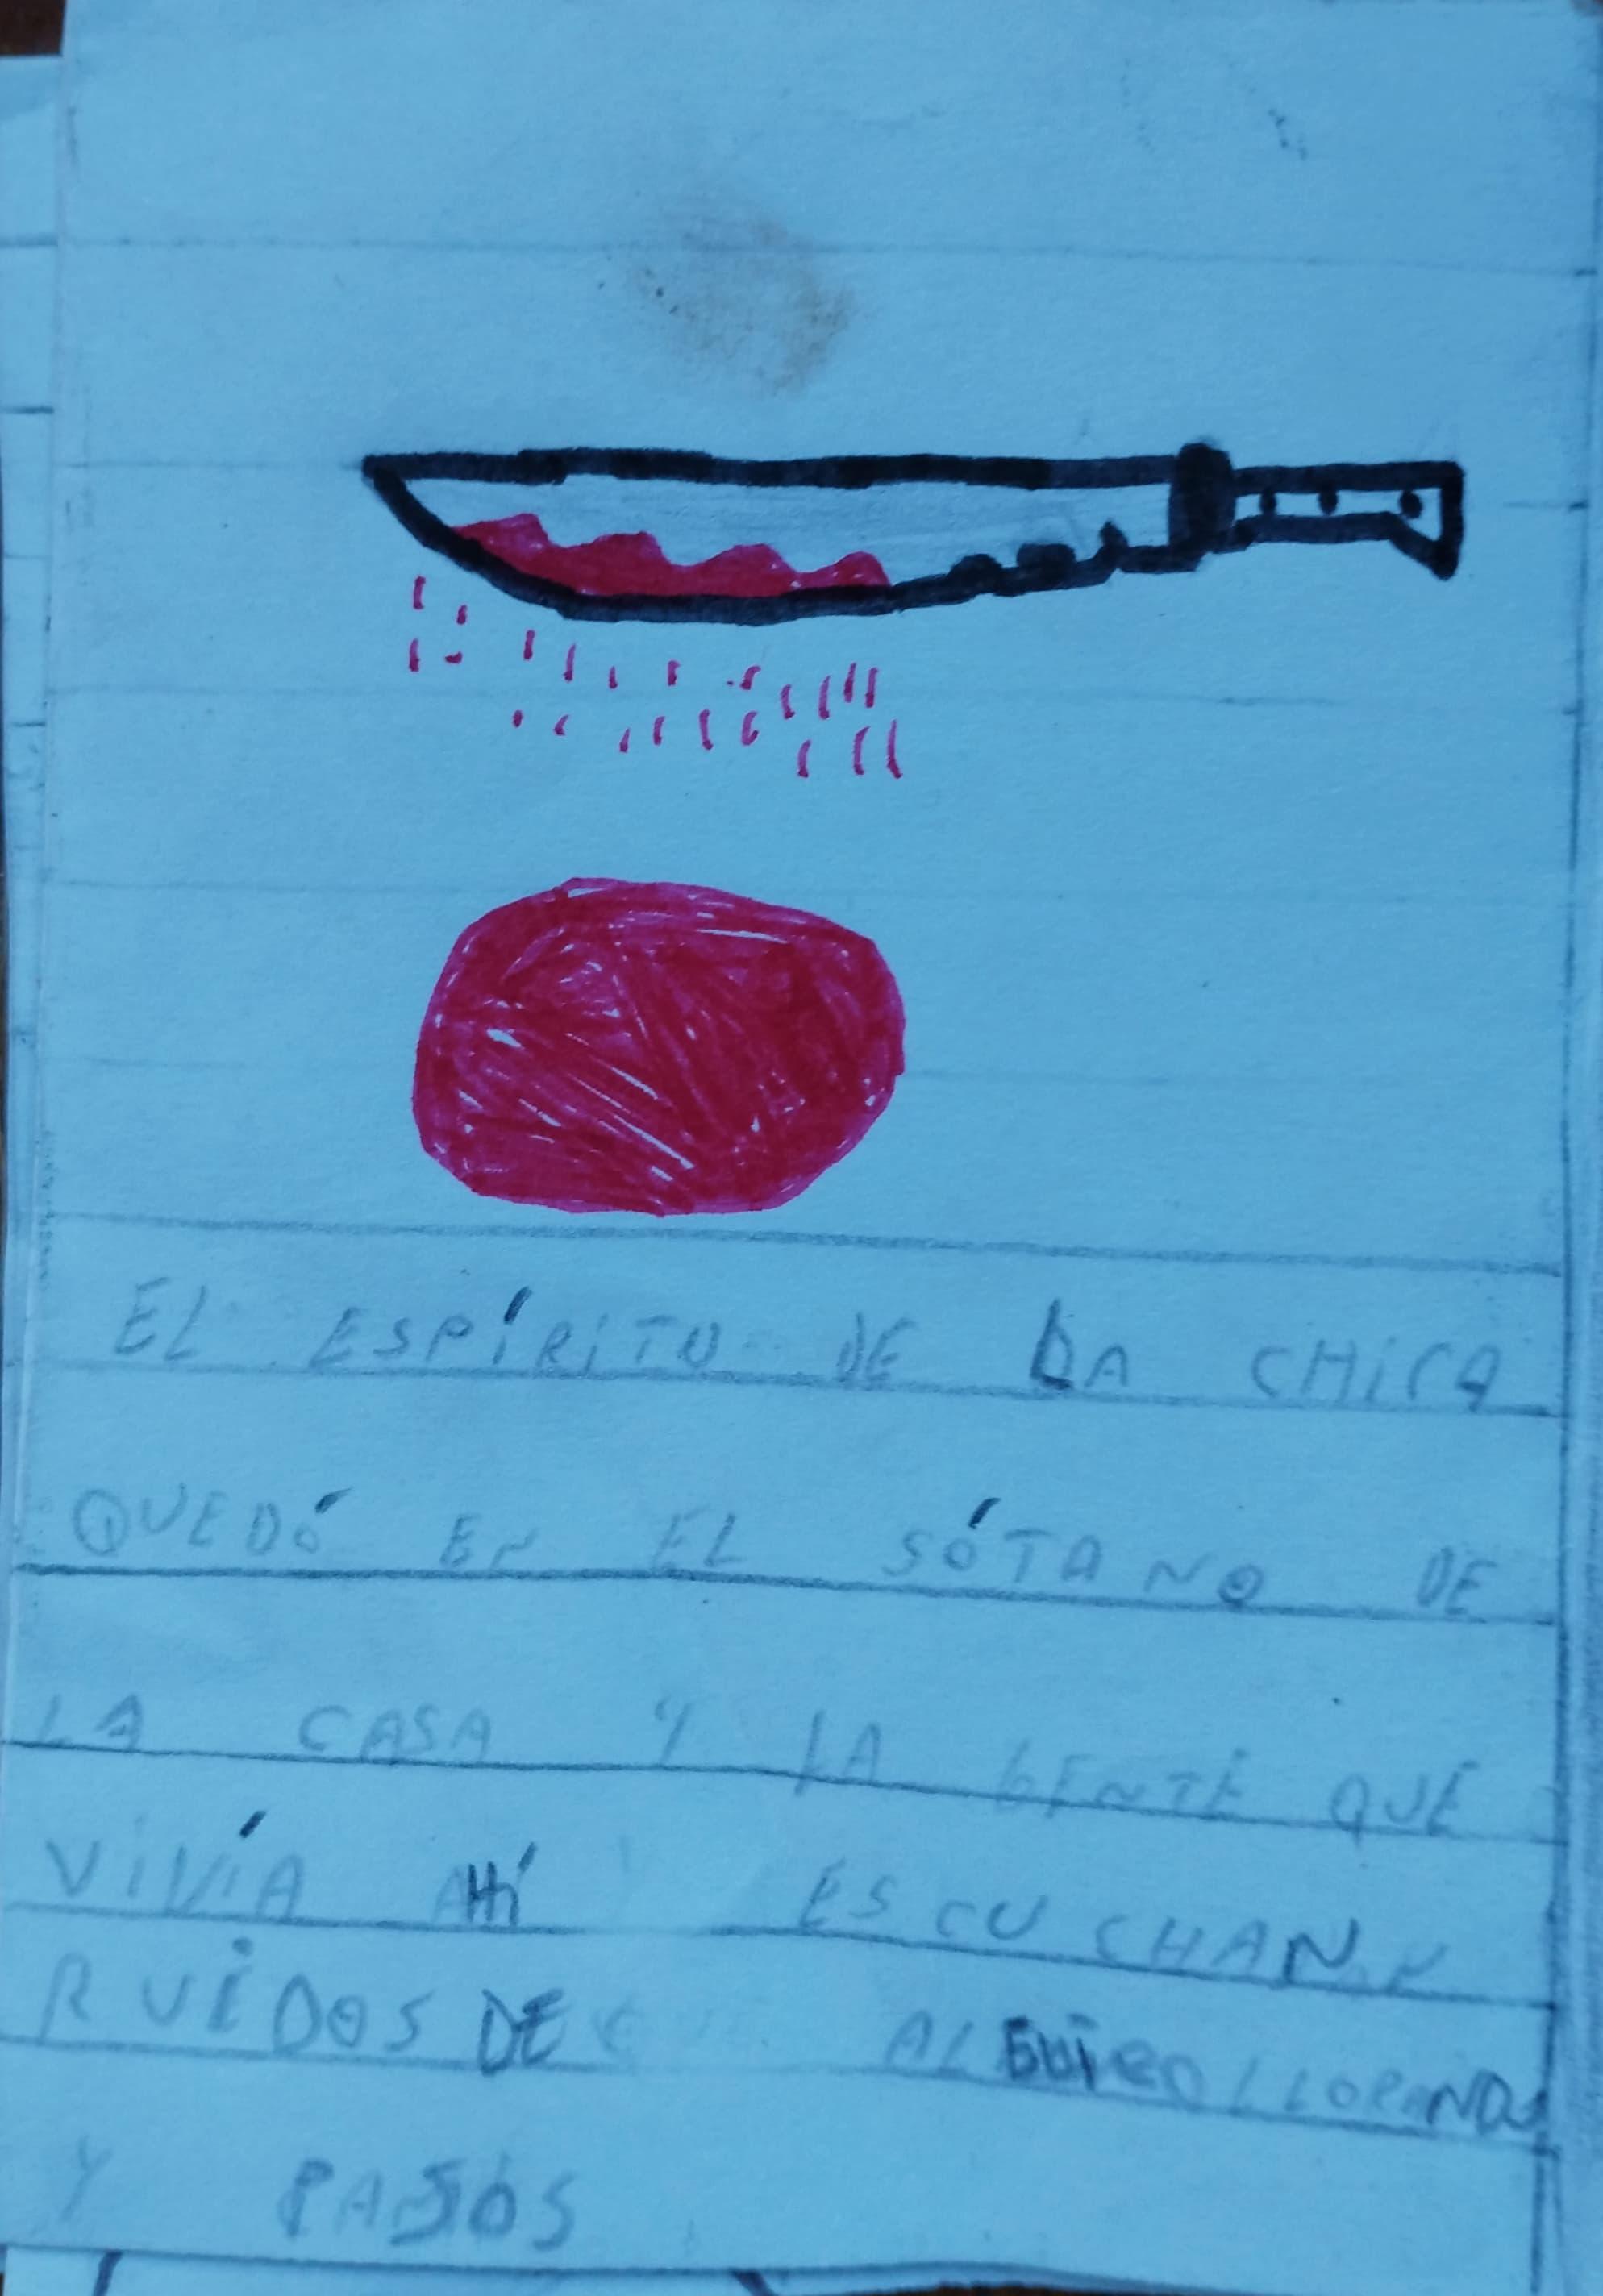 EL ESPÍRITU DE LA CHICA
QUEDÓ EN EL SÓTANO DE
LA CASA Y LA GENTE QUE
VIVÍA AHÍ ESCUCHAN
RUIDOS DE LLORANDO
Y PASOS